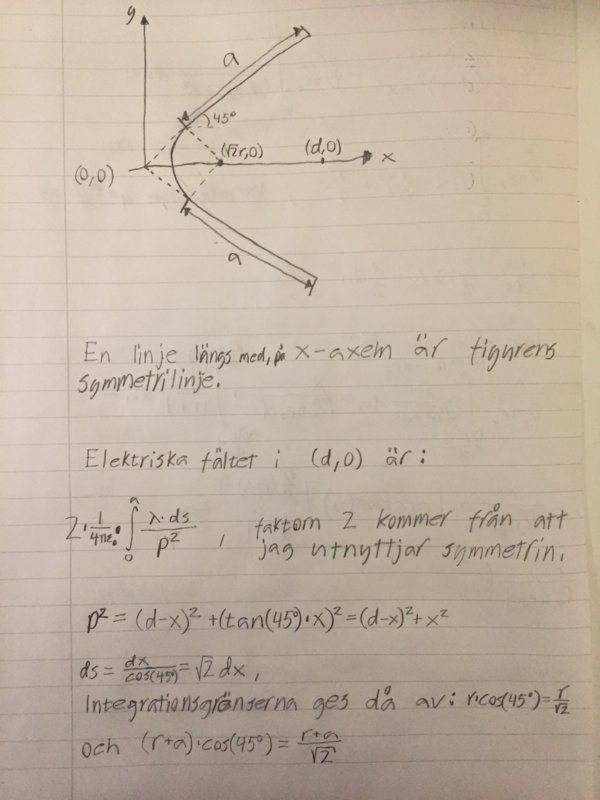 y
a
45°
(√2r,0)
(d,0)
x
(0,0)
a
En linje längs med, på x-axeln är figurens
symmetrilinje.
Elektriska fältet i (d,0) är:
2·1/4πε₀·∫₀ᵃ λ·ds/p² , faktorn 2 kommer från att
jag utnyttjar symmetrin.
p² = (d-x)² + (tan(45°)·x)² = (d-x)² + x²
ds = dx/cos(45°) = √2 dx ,
Integrationsgränserna ges då av: r·cos(45°) = r/√2
och (r+a)·cos(45°) = r+a/√2